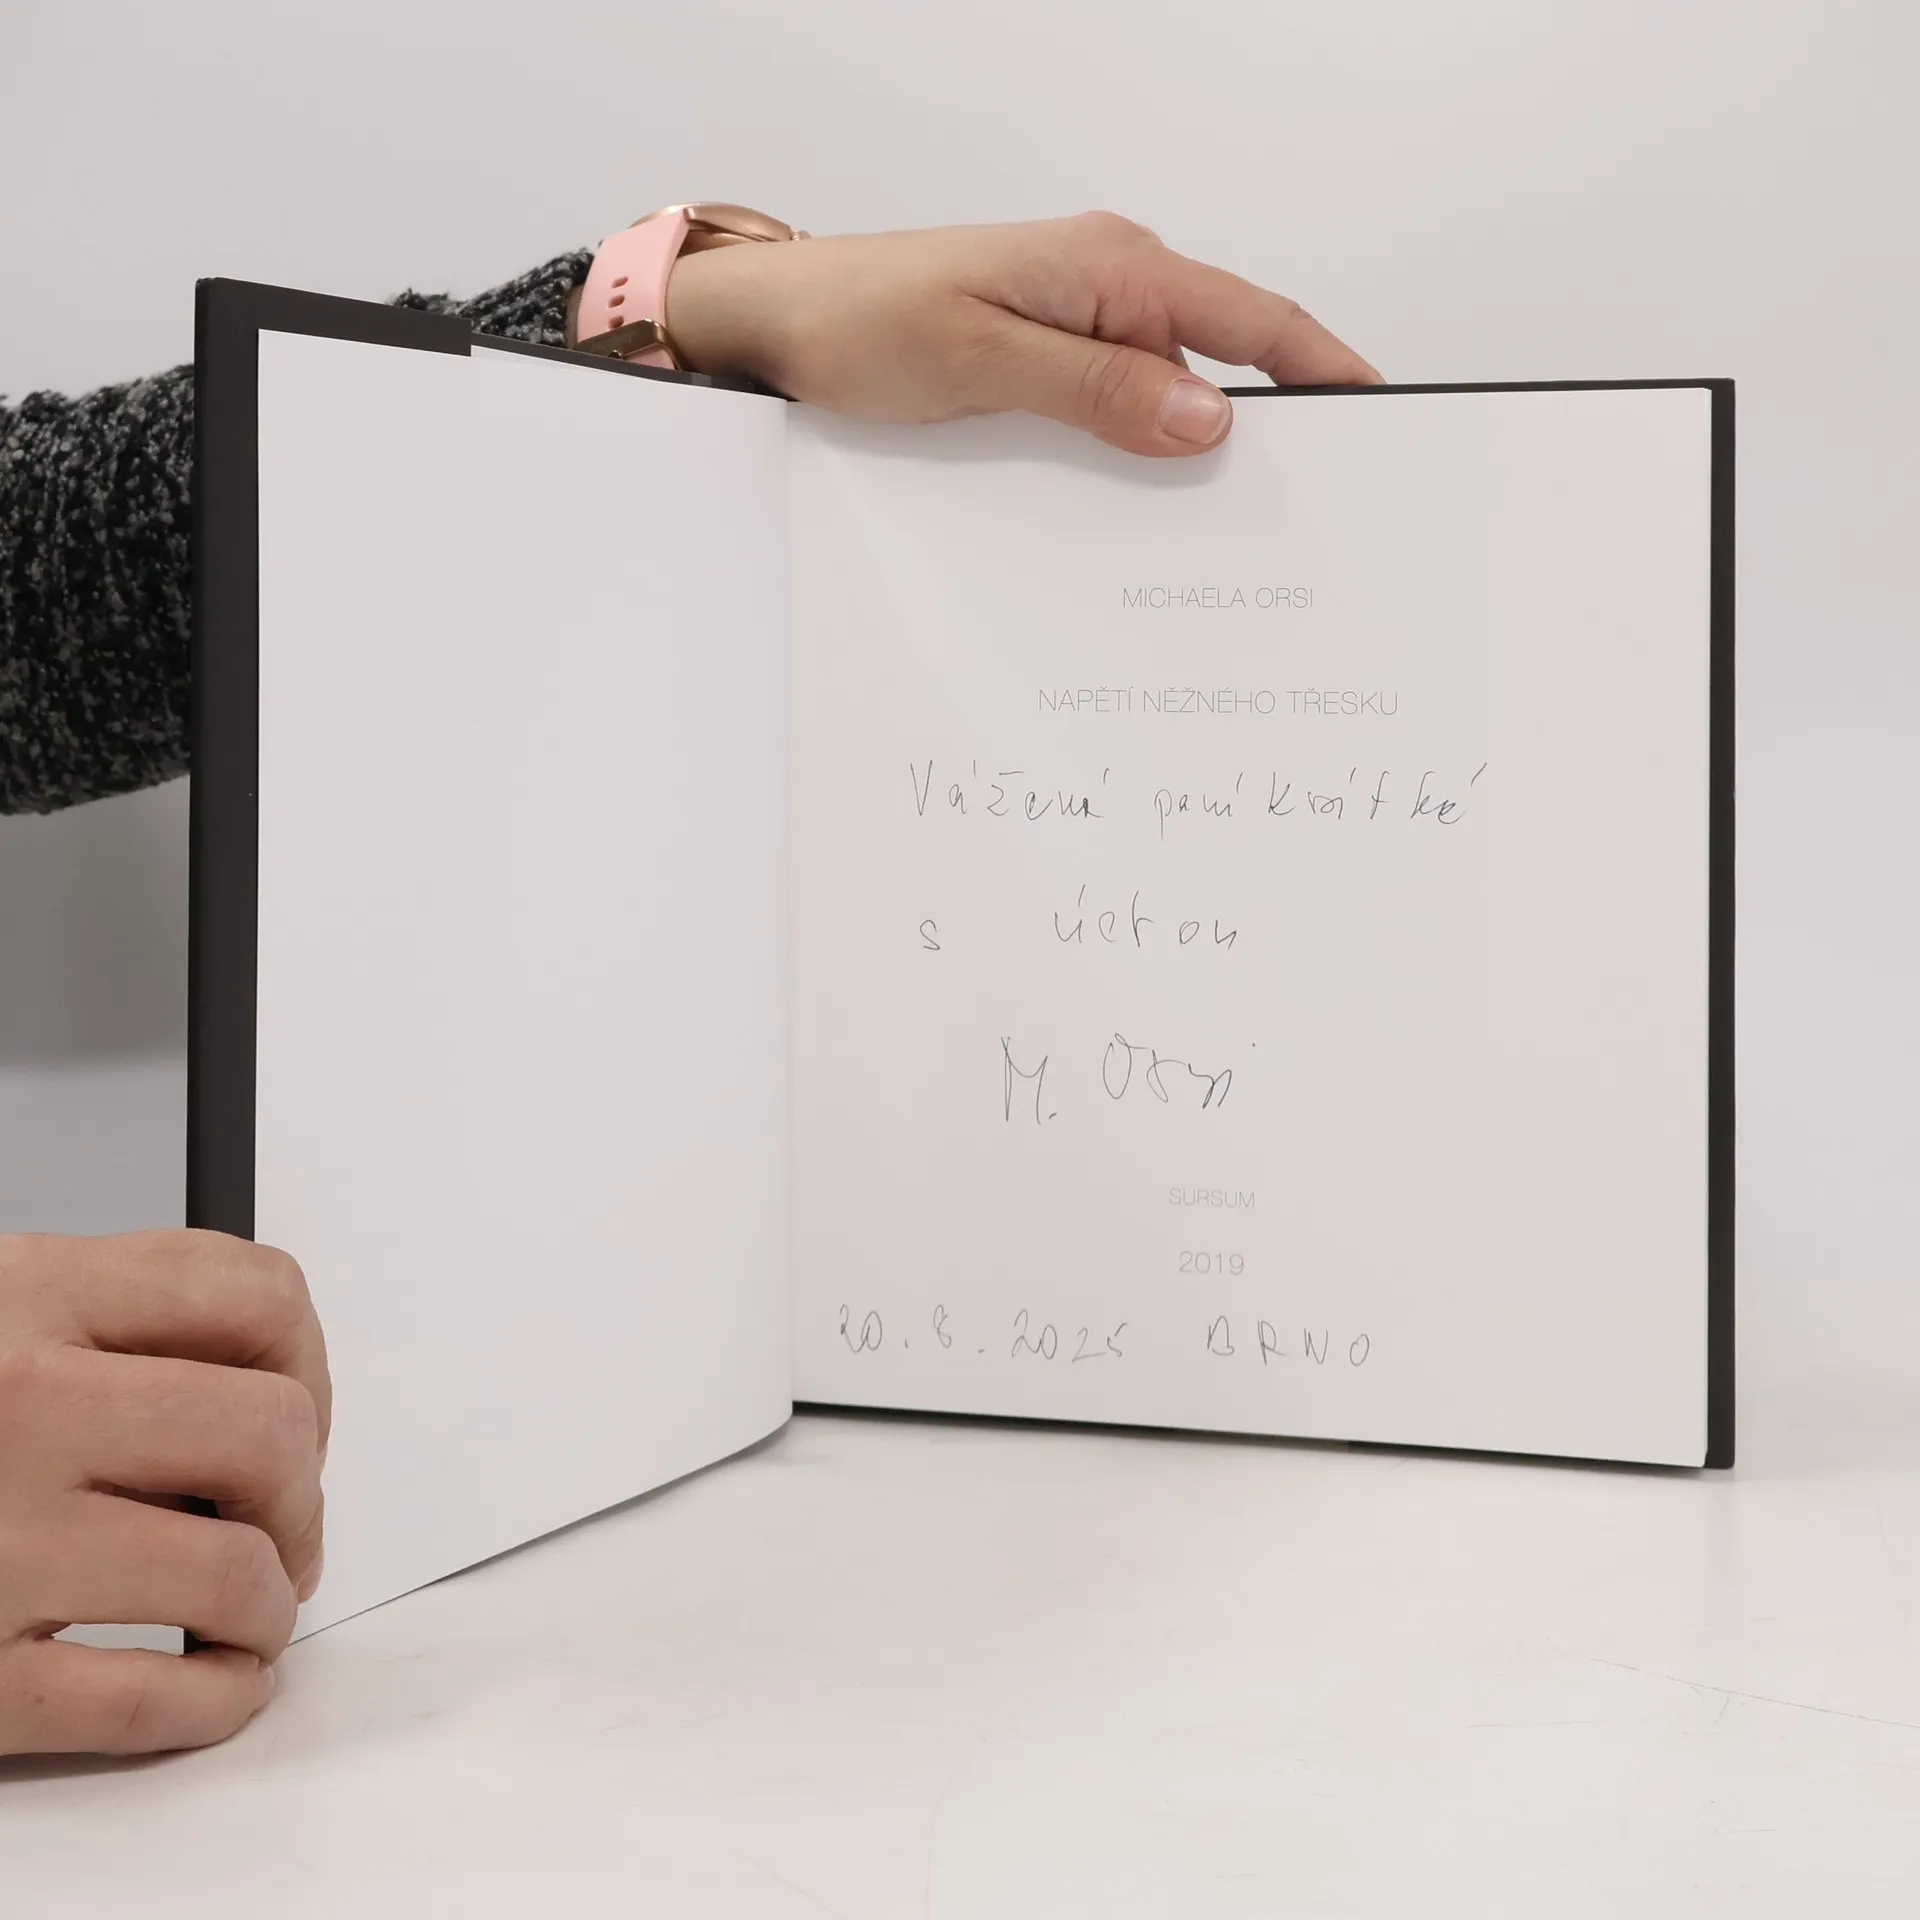 MICHAELA ORSI
NAPĚTÍ NĚŽNÉHO TŘESKU
Vážená paní Krátké
s úctou
M. Orsi
SURSUM
2019
20. 8. 2025 BRNO